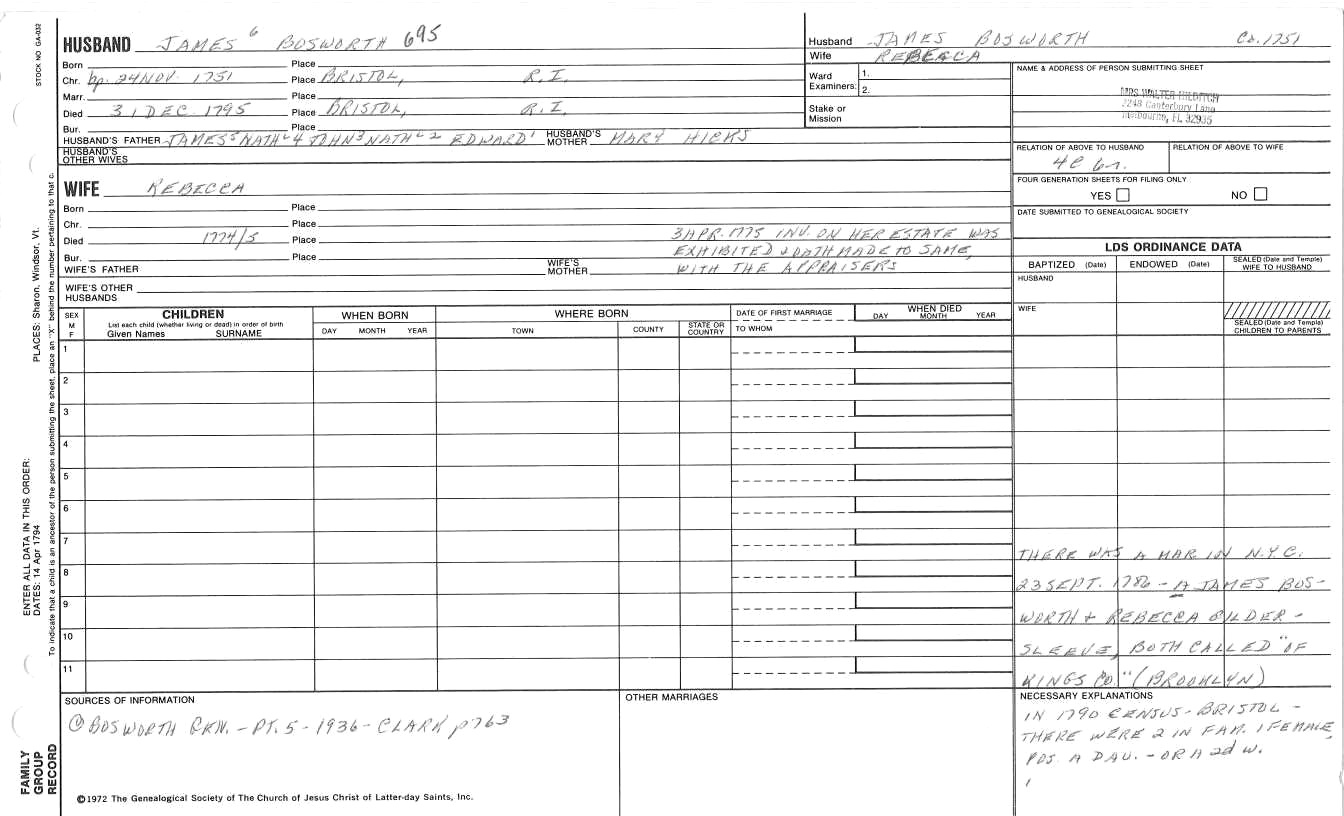 STOCK NO GA-032
HUSBAND JAMES 6 BOSWORTH 695
Born Place
Chr. bp. 24 NOV 1751 Place BRISTOL, R.I.
Marr. Place
Died 31 DEC 1795 Place BRISTOL, R.I.
Bur. Place
HUSBAND'S FATHER JAMES 5 NATHL 4 JOHN 3 NATHL 2 EDWARD 1 HUSBAND'S MOTHER MARY HICKS
HUSBAND'S OTHER WIVES
WIFE REBECCA
Born Place
Chr. Place
Died 1774/5 Place
Bur. Place
3 APR. 1775 INV. ON HER ESTATE WAS
EXHIBITED & OATH MADE TO SAME,
WITH THE APPRAISERS
WIFE'S FATHER WIFE'S MOTHER
WIFE'S OTHER HUSBANDS
Husband JAMES BOSWORTH Co. 1751
Wife REBECCA
Ward Examiners: 1.
2.
Stake or Mission
NAME & ADDRESS OF PERSON SUBMITTING SHEET
MRS WALTER HILDITCH
2248 Canterbury Lane
Melbourne, FL 32935
RELATION OF ABOVE TO HUSBAND RELATION OF ABOVE TO WIFE
4C 6r.
FOUR GENERATION SHEETS FOR FILING ONLY
YES NO
DATE SUBMITTED TO GENEALOGICAL SOCIETY
LDS ORDINANCE DATA
BAPTIZED (Date) ENDOWED (Date) SEALED (Date and Temple) WIFE TO HUSBAND
HUSBAND
WIFE
SEALED (Date and Temple) CHILDREN TO PARENTS
SEX M F
CHILDREN
List each child (whether living or dead) in order of birth
Given Names SURNAME
WHEN BORN
DAY MONTH YEAR
WHERE BORN
TOWN COUNTY STATE OR COUNTRY
DATE OF FIRST MARRIAGE
TO WHOM
WHEN DIED
DAY MONTH YEAR
1
2
3
4
5
6
7
8
9
10
11
THERE WAS A MAR. IN N.Y.C.
23 SEPT. 1786 - A JAMES BOS-
WORTH & REBECCA GILDER-
SLEEVE, BOTH CALLED "OF
KINGS CO." (BROOKLYN)
SOURCES OF INFORMATION
① BOSWORTH GEN. - PT. 5 - 1936 - CLARK p763
OTHER MARRIAGES
NECESSARY EXPLANATIONS
IN 1790 CENSUS - BRISTOL -
THERE WERE 2 IN FAM. 1 FEMALE,
POS. A DAU. - OR A 2d W.
©1972 The Genealogical Society of The Church of Jesus Christ of Latter-day Saints, Inc.
PLACES: Sharon, Windsor, Vt.
ENTER ALL DATA IN THIS ORDER:
DATES: 14 Apr 1794
To indicate that a child is an ancestor of the person submitting the sheet, place an "X" behind the number pertaining to that c.
FAMILY
GROUP
RECORD